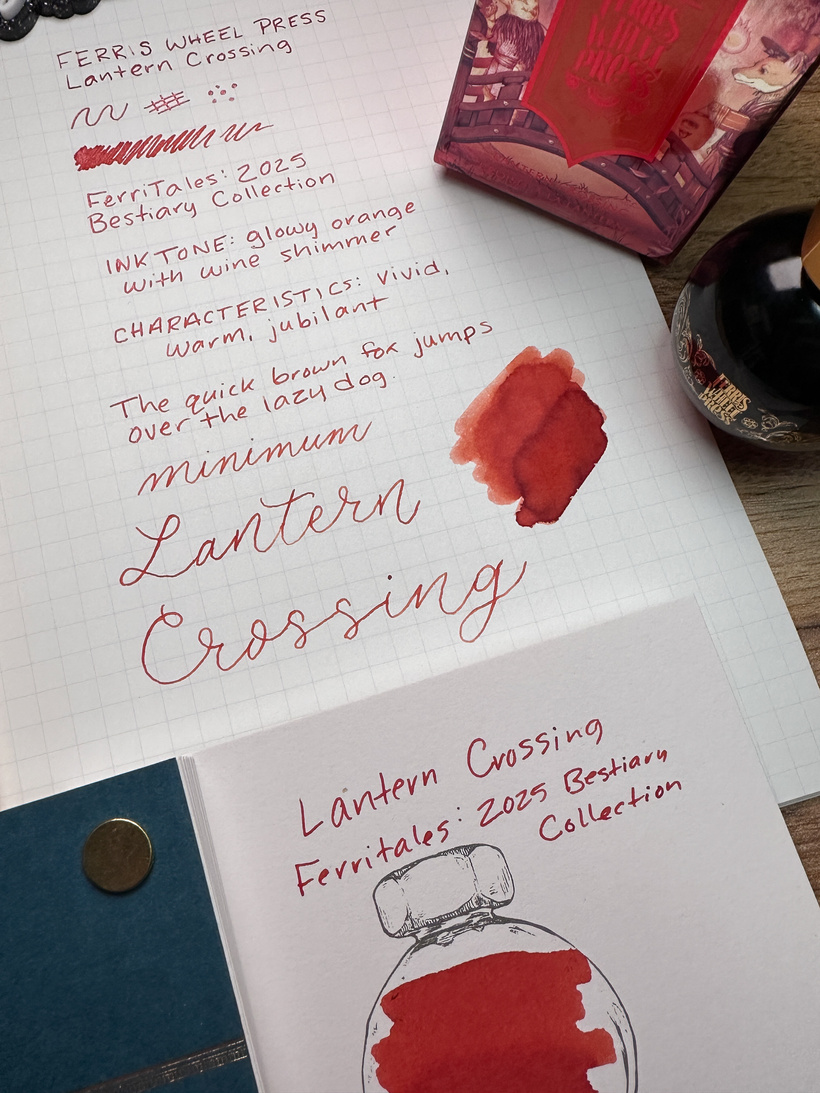 FERRIS WHEEL PRESS
Lantern Crossing
FerriTales: 2025
Bestiary Collection
INK TONE: glowy orange
with wine shimmer
CHARACTERISTICS: vivid,
warm, jubilant
The quick brown fox jumps
over the lazy dog.
minimum
Lantern
Crossing
FERRIS
WHEEL
PRESS
FERRIS
WHEEL
PRESS
Lantern Crossing
Ferritales: 2025 Bestiary
Collection